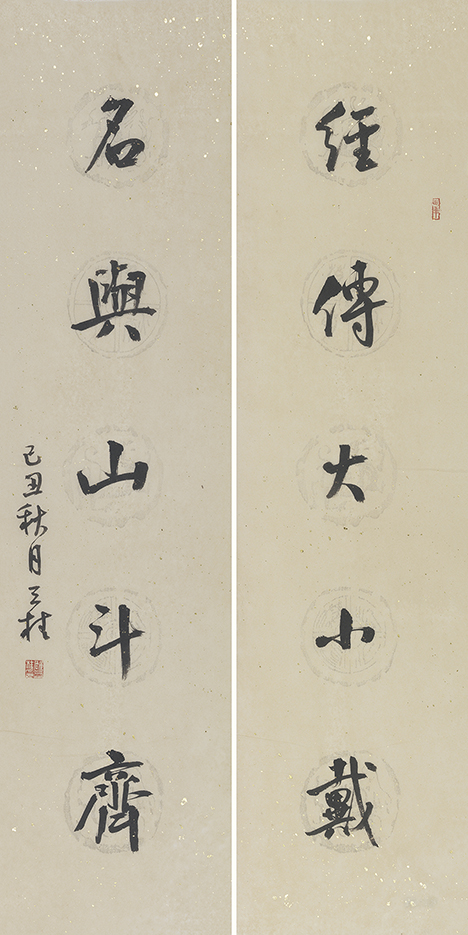 經傳大小戴
名與山斗齊
己丑秋月天桂